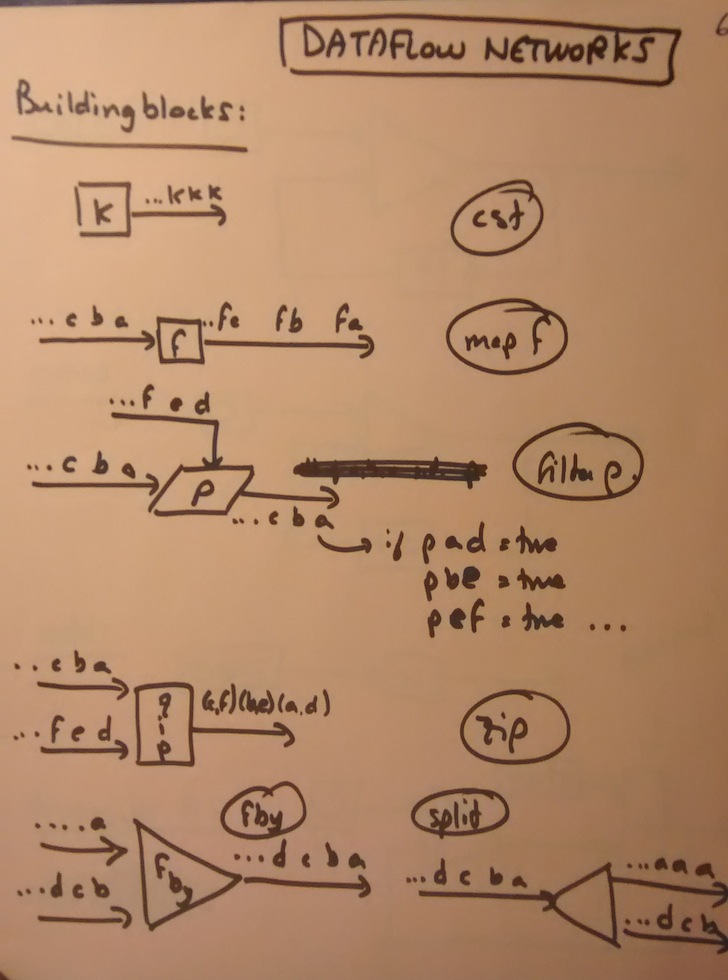 6
DATAFLOW NETWORKS
Building blocks:
K ...kkk cst
...c b a f ..fc fb fa map f
...f e d
...c b a p filter p.
...c b a
if p a d = true
p b e = true
p c f = true ...
..c b a
...f e d zip (c,f)(b,e)(a,d) zip
fby split
....a
...dcb Fby ...d c b a ...d c b a ...aaa
...dcb